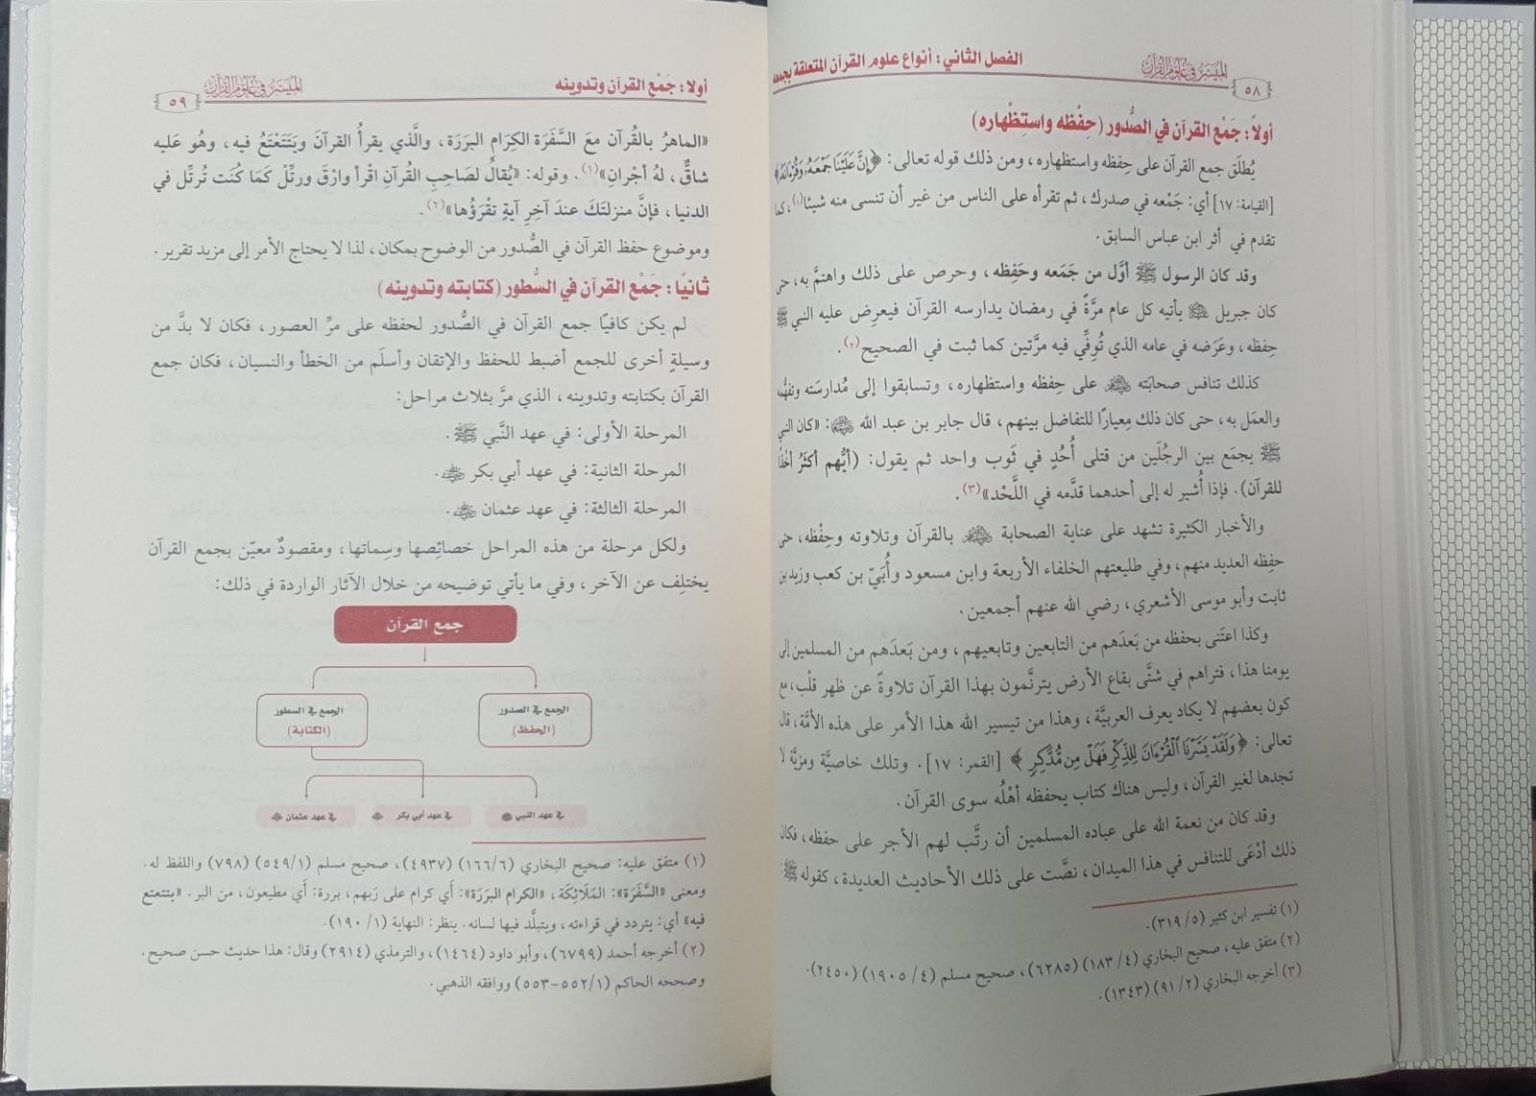 الميسر في علوم القرآن
٥٨
الفصل الثاني: أنواع علوم القرآن المتعلقة بجمعه
أولاً: جَمْع القرآن في الصُّدور (حِفْظه واستِظْهاره)
يُطلَق جمع القرآن على حِفظه واستظهاره، ومن ذلك قوله تعالى: ﴿إِنَّ عَلَيْنَا جَمْعَهُ وَقُرْءَانَهُ﴾
[القيامة: ١٧] أي: جَمْعه في صدرك، ثم تقرأه على الناس من غير أن تنسى منه شيئًا(١)، كما
تقدم في أثر ابن عباس السابق.
وقد كان الرسول ﷺ أوَّل من جَمَعه وحَفِظه، وحرص على ذلك واهتمَّ به، حتى
كان جبريل يأتيه كل عام مرَّةً في رمضان يدارسه القرآن فيعرِض عليه النبي ﷺ
حِفظه، وعَرَضه في عامه الذي تُوفِّي فيه مرَّتين كما ثبت في الصحيح(٢).
كذلك تنافس صحابَته على حِفظه واستظهاره، وتسابقوا إلى مُدارسَته وتفهُّمه
والعمَل به، حتى كان ذلك مِعيارًا للتفاضل بينهم، قال جابر بن عبد الله: «كان النبي
ﷺ يجمَع بين الرجُلَين من قتلى أُحُدٍ في ثَوب واحد ثم يقول: (أيُّهم أكثَرُ أخْذًا
للقرآن). فإذا أُشير له إلى أحدهما قدَّمه في اللَّحْد»(٣).
والأخبار الكثيرة تشهد على عناية الصحابة بالقرآن وتلاوته وحِفْظه، حتى
حفِظه العديد منهم، وفي طليعتهم الخلفاء الأربعة وابن مسعود وأُبَيّ بن كعب وزيد بن
ثابت وأبو موسى الأشعري، رضي الله عنهم أجمعين.
وكذا اعتَنى بحفظه من بَعدَهم من التابعين وتابعيهم، ومن بَعدَهم من المسلمين إلى
يومنا هذا، فتراهم في شتَّى بقاع الأرض يترنَّمون بهذا القرآن تلاوةً عن ظهر قلْب، مع
كون بعضهم لا يكاد يعرف العربيَّة، وهذا من تيسير الله هذا الأمر على هذه الأمَّة، قال
تعالى: ﴿وَلَقَدْ يَسَّرْنَا ٱلْقُرْءَانَ لِلذِّكْرِ فَهَلْ مِن مُّدَّكِرٍ﴾ [القمر: ١٧]. وتلك خاصيَّة ومزيَّة لا
تجدها لغير القرآن، وليس هناك كتاب يحفظه أهْلُه سوى القرآن.
وقد كان من نعمة الله على عباده المسلمين أن رتَّب لهم الأجر على حفظه، فكان
ذلك أدْعَى للتنافس في هذا الميدان، نصَّت على ذلك الأحاديث العديدة، كقوله ﷺ:
(١) تفسير ابن كثير (٥/ ٣١٩).
(٢) متفق عليه، صحيح البخاري (٤/ ١٨٣) (٦٢٨٥)، صحيح مسلم (٤/ ١٩٠٥) (٢٤٥٠).
(٣) أخرجه البخاري (٢/ ٩١) (١٣٤٣).
أولا: جَمْع القرآن وتدوينه
الميسر في علوم القرآن
٥٩
«الماهرُ بالقُرآن معَ السَّفَرَة الكِرَام البَرَرَة، والَّذي يقرأُ القرآنَ ويَتَتَعْتَعُ فيه، وهُو عَليه
شاقٌّ، لهُ أجْرانِ»(١). وقوله: «يُقالُ لصَاحِبِ القُرآنِ اقْرأ وارْقَ ورتِّلْ كَمَا كُنت تُرتِّل في
الدنيا، فإنَّ منزلتَكَ عندَ آخِرِ آيةٍ تقْرَؤُها»(٢).
وموضوع حفظ القرآن في الصُّدور من الوضوح بمكان، لذا لا يحتاج الأمر إلى مزيد تقرير.
ثانيًا: جَمْع القرآن في السُّطور (كتابته وتدوينه)
لم يكن كافيًا جمع القرآن في الصُّدور لحفظه على مرِّ العصور، فكان لا بدَّ من
وسيلةٍ أخرى للجمع أضبط للحفظ والإتقان وأسلَم من الخطأ والنسيان، فكان جمع
القرآن بكتابته وتدوينه، الذي مرَّ بثلاث مراحل:
المرحلة الأولى: في عهد النَّبي ﷺ.
المرحلة الثانية: في عهد أبي بكر.
المرحلة الثالثة: في عهد عثمان.
ولكل مرحلة من هذه المراحل خصائِصها وسِماتها، ومقصودٌ معيّن بجمع القرآن
يختلِف عن الآخر، وفي ما يأتي توضيحه من خلال الآثار الواردة في ذلك:
جمع القرآن
الجمع في الصدور
(الحفظ)
الجمع في السطور
(الكتابة)
في عهد النبي ﷺ
في عهد أبي بكر
في عهد عثمان
(١) متفق عليه: صحيح البخاري (١٦٦/٦) (٤٩٣٧)، صحيح مسلم (٥٤٩/١) (٧٩٨) واللفظ له.
ومعنى «السَّفَرَة»: المَلَائِكَة، «الكرام البَرَرَة»: أَي كرام على رَبهم، بررة: أَي مطيعون، من البر. «يتتعتع
فيه» أي: يتردد في قراءته، ويتبلَّد فيها لسانه. ينظر: النهاية (١/ ١٩٠).
(٢) أخرجه أحمد (٦٧٩٩)، وأبو داود (١٤٦٤)، والترمذي (٢٩١٤) وقال: هذا حديث حسن صحيح.
وصححه الحاكم (٥٥٢/١-٥٥٣) ووافقه الذهبي.